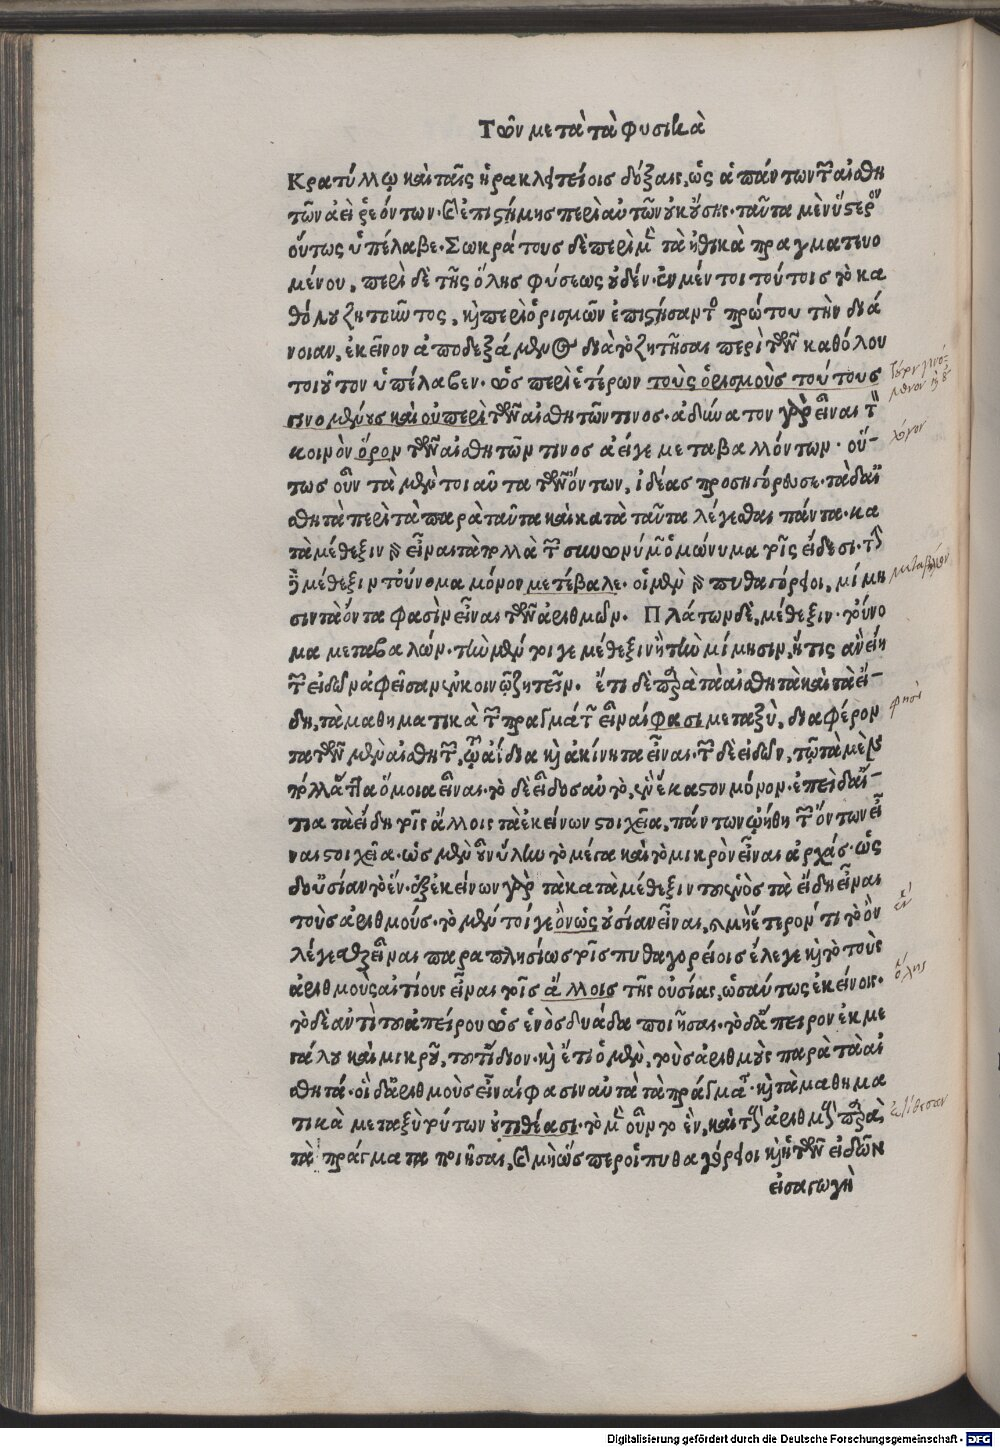 Τῶν μετὰ τὰ φυσικὰ
Κρατύλλῳ καὶ ταῖς ἡρακλειτείοις δόξαις, ὡς ἁπάντων τῶν αἰσθη
τῶν ἀεὶ ῥεόντων. καὶ ἐπιστήμης περὶ αὐτῶν οὐκ οὔσης. ταῦτα μὲν ὕστερον
οὕτως ὑπέλαβε. Σωκράτους δὲ περὶ μὲν τὰ ἠθικὰ πραγματευο
μένου, περὶ δὲ τῆς ὅλης φύσεως οὐδέν. ἐν μέντοι τούτοις τὸ κα
θόλου ζητοῦντος, καὶ περὶ ὁρισμῶν ἐπιστήσαντος πρώτου τὴν διά
νοιαν, ἐκεῖνον ἀποδεξάμενος διὰ τὸ ζητῆσαι περὶ τῶν καθόλου
τοιοῦτον ὑπέλαβεν. ὡς περὶ ἑτέρων τοὺς ὁρισμοὺς τούτους
γινομένους καὶ οὐ περὶ τῶν αἰσθητῶν τινος. ἀδύνατον γὰρ εἶναι τὸν
κοινὸν ὅρον τῶν αἰσθητῶν τινος ἀεί γε μεταβαλλόντων. οὕ-
τως οὖν τὰ μὲν τοιαῦτα τῶν ὄντων, ἰδέας προσηγόρευσε. τὰ δ' αἰ
σθητὰ περὶ τὰ παρὰ ταῦτα καὶ κατὰ ταῦτα λέγεσθαι πάντα. κα
τὰ μέθεξιν γὰρ εἶναι τὰ πολλὰ τῶν συνωνύμων ὁμώνυμα τοῖς εἴδεσι. τὴν
δὲ μέθεξιν τοὔνομα μόνον μετέβαλε. οἱ μὲν γὰρ πυθαγόρειοι, μίμη
σιν τὰ ὄντα φασὶν εἶναι τῶν ἀριθμῶν. Πλάτων δὲ, μέθεξιν. τοὔνο
μα μεταβαλών. τὴν μέντοι γε μέθεξιν ἢ τὴν μίμησιν, ἥτις ἂν εἴη
τῶν εἰδῶν ἀφεῖσαν ἐν κοινῷ ζητεῖν. ἔτι δὲ παρὰ τὰ αἰσθητὰ καὶ τὰ εἴ-
δη, τὰ μαθηματικὰ τῶν πραγμάτων εἶναί φασι μεταξὺ, διαφέρον
τα τῶν μὲν αἰσθητῶν, τῷ ἀΐδια καὶ ἀκίνητα εἶναι. τῶν δὲ εἰδῶν, τῷ τὰ μὲν
πόλλ' ἄττα ὅμοια εἶναι. τὸ δὲ εἶδος αὐτὸ, ἓν ἕκαστον μόνον. ἐπεὶ δ' αἴ-
τια τὰ εἴδη τοῖς ἄλλοις τὰ ἐκείνων στοιχεῖα, πάντων ᾠήθη τῶν ὄντων εἶ
ναι στοιχεῖα. ὡς μὲν οὖν ὕλην τὸ μέγα καὶ τὸ μικρὸν εἶναι ἀρχάς. ὡς
δ' οὐσίαν τὸ ἕν. ἐξ ἐκείνων γὰρ τὰ κατὰ μέθεξιν τοῦ ἑνὸς τὰ εἴδη εἶναι
τοὺς ἀριθμούς. τὸ μέντοι γε ὂν ὡς οὐσίαν εἶναι, καὶ μὴ ἕτερόν τι τὸ ὂν
λέγεσθαι εἶναι παραπλησίως τοῖς πυθαγορείοις ἔλεγε καὶ τὸ τοὺς
ἀριθμοὺς αἰτίους εἶναι τοῖς ἄλλοις τῆς οὐσίας, ὡσαύτως ἐκείνοις.
τὸ δὲ ἀντὶ τοῦ ἀπείρου ὡς ἑνὸς δυάδα ποιῆσαι. τὸ δ' ἄπειρον ἐκ με
γάλου καὶ μικροῦ, τοῦτ' ἴδιον. καὶ ἔτι ὁ μὲν, τοὺς ἀριθμοὺς παρὰ τὰ αἰ
σθητά. οἱ δ' ἀριθμοὺς εἶναί φασιν αὐτὰ τὰ πράγματα. καὶ τὰ μαθημα
τικὰ μεταξὺ τούτων οὐ τιθέασι. τὸ μὲν οὖν τὸ ἓν, καὶ τοὺς ἀριθμοὺς παρὰ
τὰ πράγματα ποιῆσαι, καὶ μὴ ὥσπερ οἱ πυθαγόρειοι καὶ ἡ τῶν εἰδῶν
εἰσαγωγὴ
λόγον
μεταβάλλων
φησὶ
ἓν
ὅλης
τίθεσαν
Digitalisierung gefördert durch die Deutsche Forschungsgemeinschaft - DFG